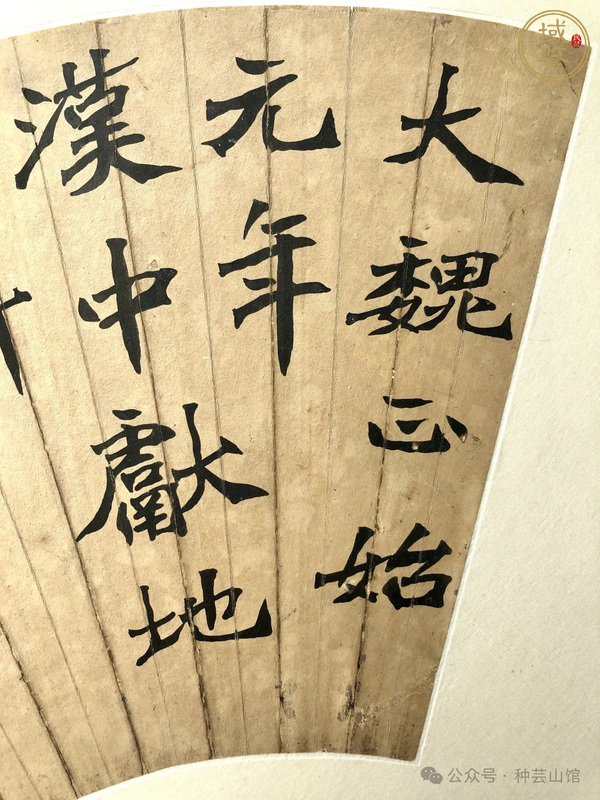 大魏正始
元年
漢中獻地
公众号·种芸山馆